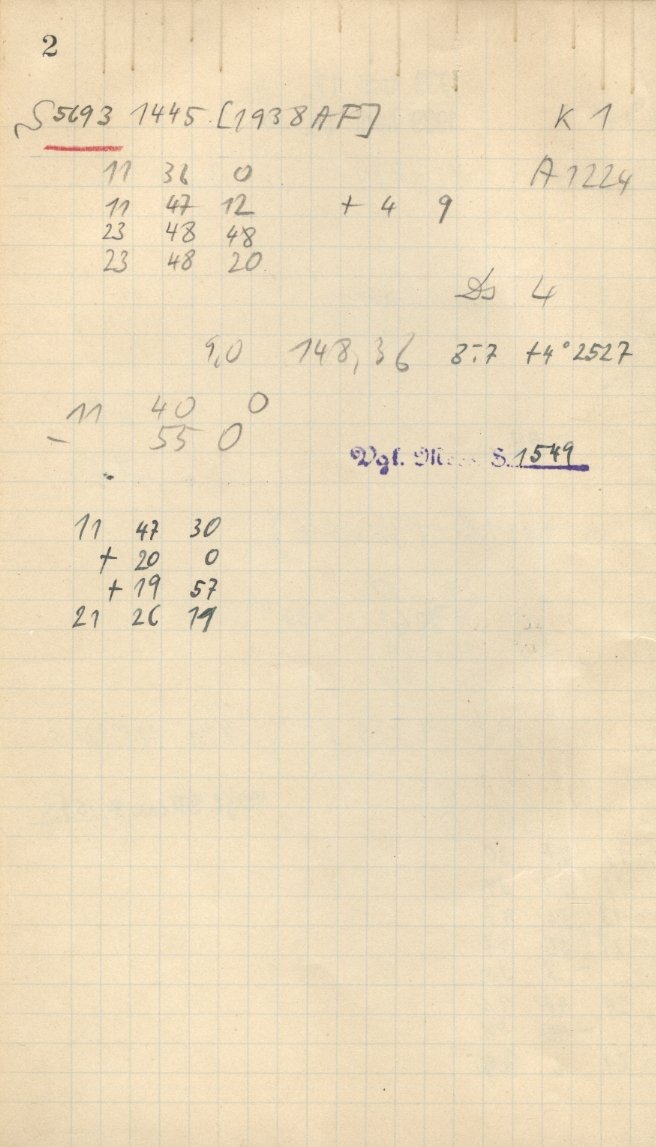 2
S 5693 1445 [1938AF] K 1
11 36 0 A 1224
11 47 12 + 4 9
23 48 48
23 48 20
Ds 4
9,0 148,36 8:7 +4°2527
11 40 0
- 55 0
Vgl. S. 1549
11 47 30
+ 20 0
+ 19 57
21 26 19